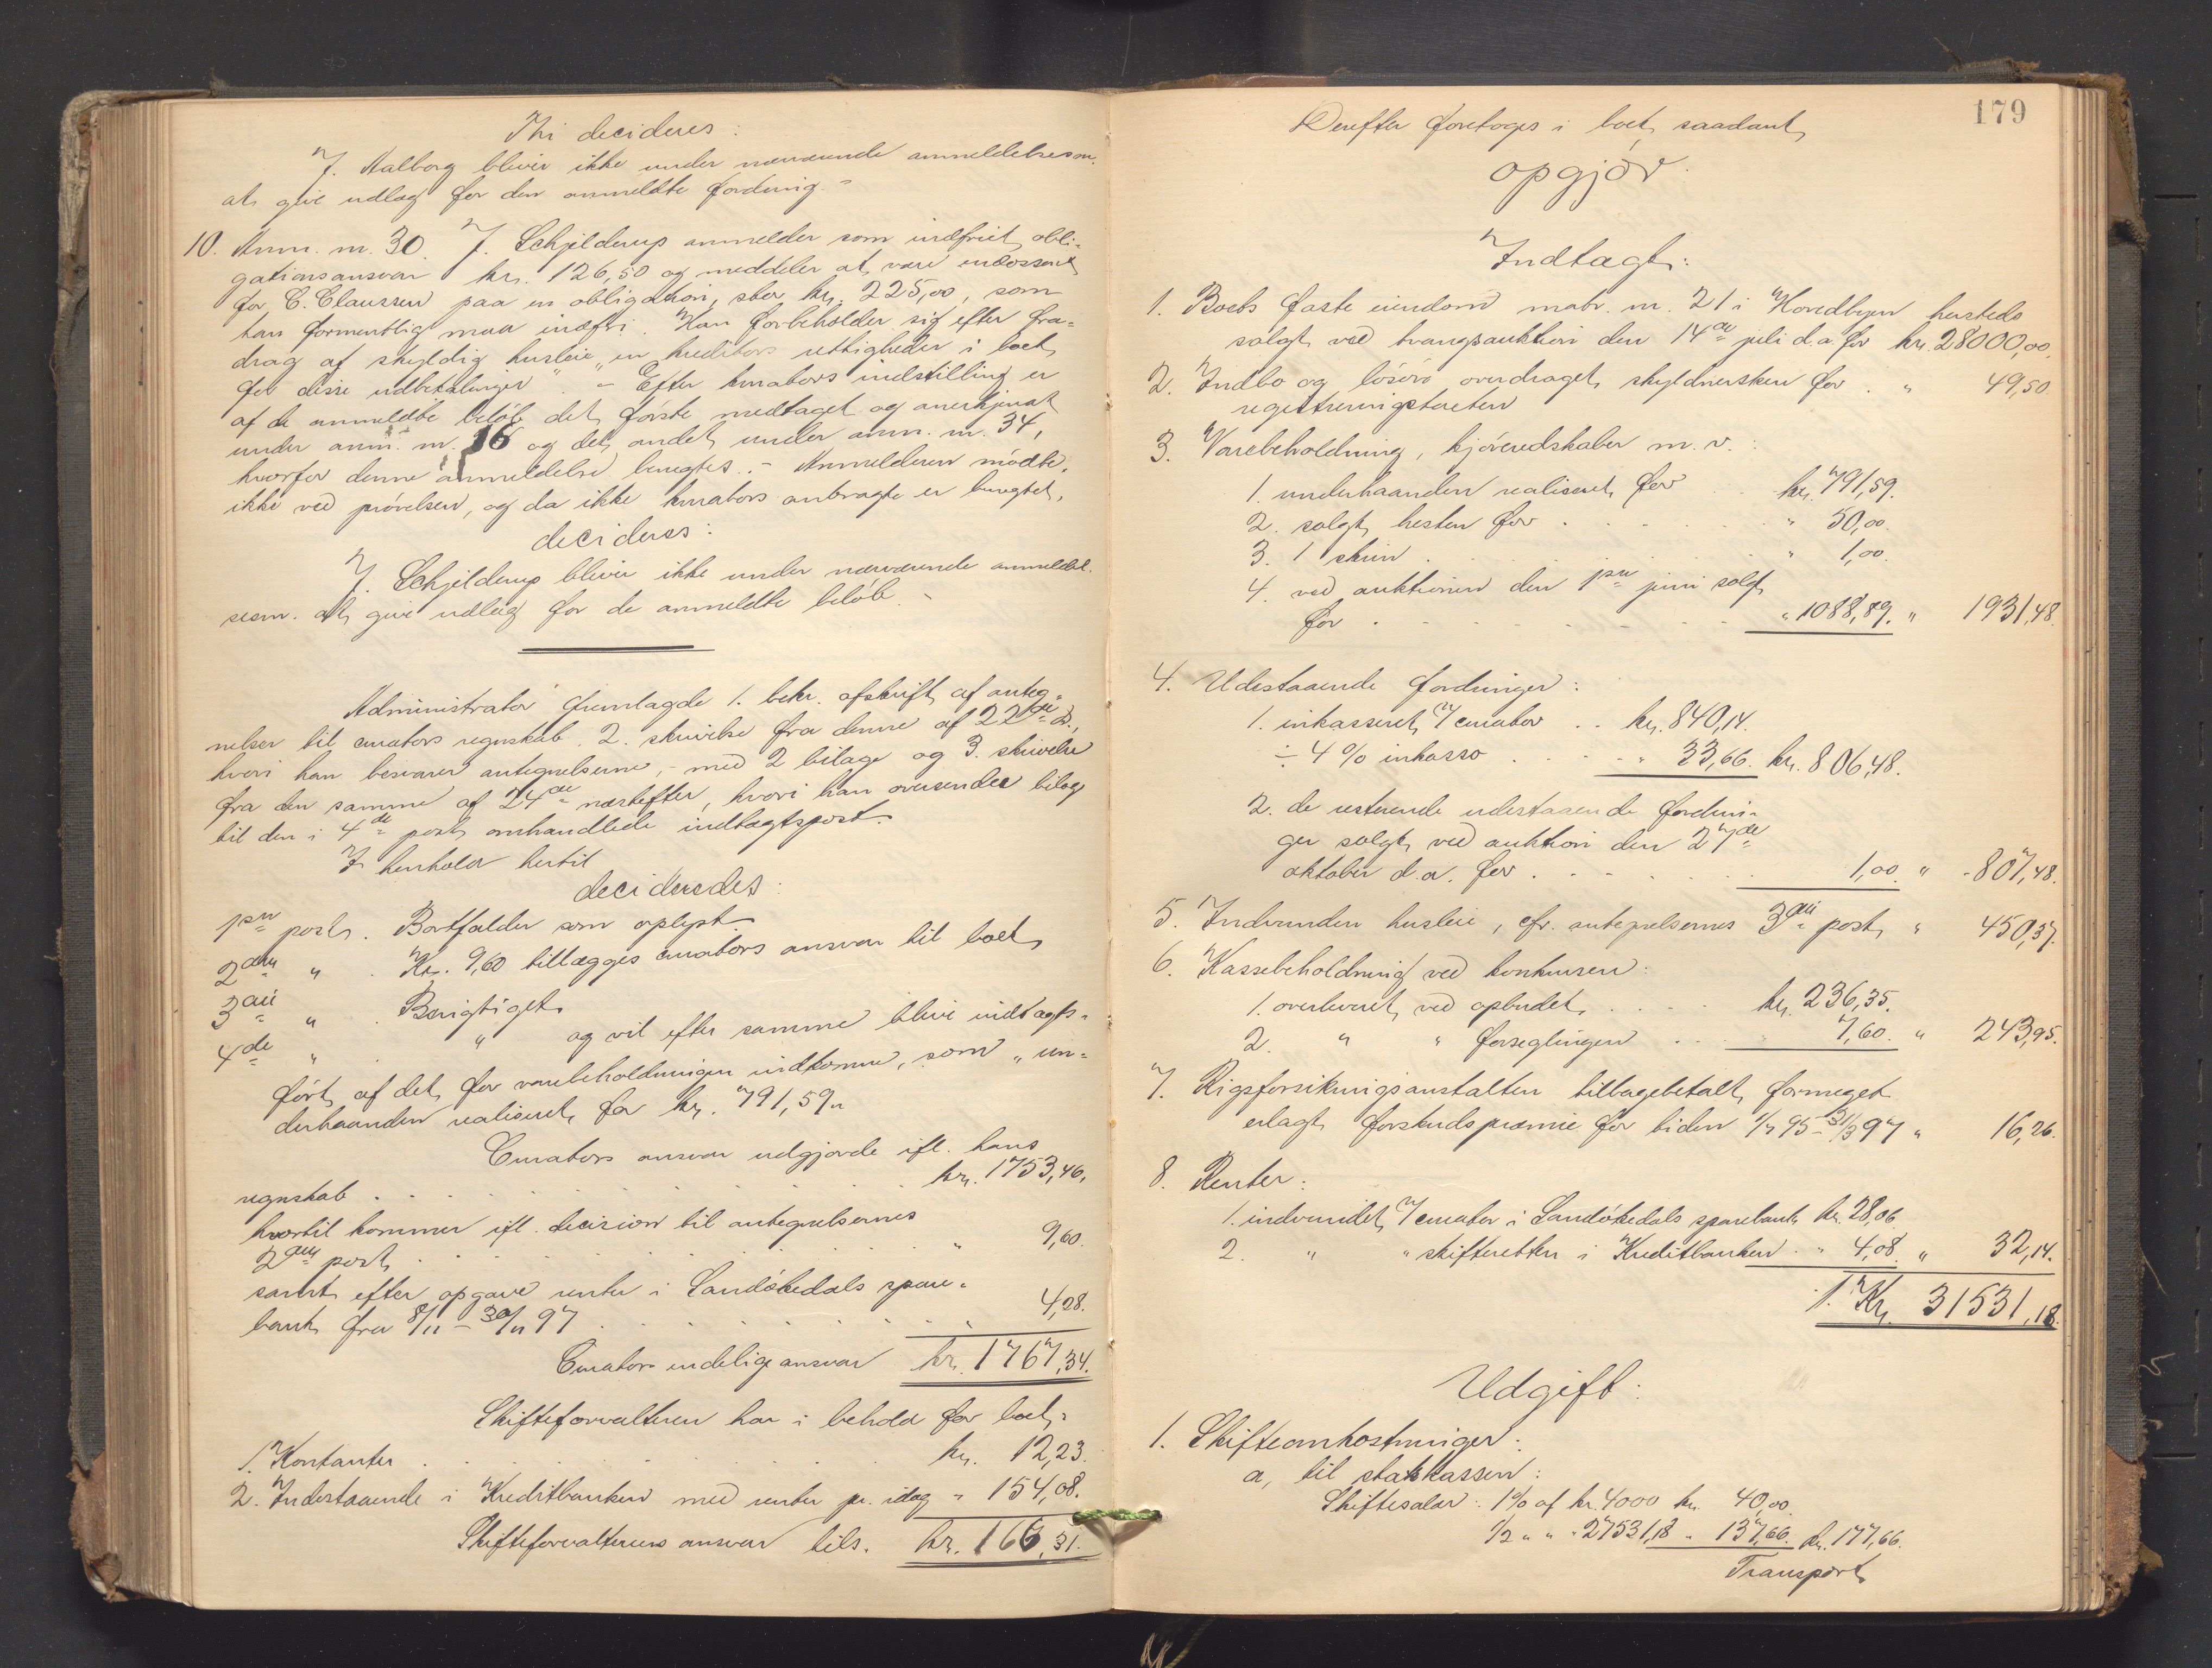 Thi decideres:
J. Aalborg bliver ikke under nærværende anmeldelsesm.
at give udlæg for den anmeldte fordring. -
10. Anm. nr. 30. J. Schjelderup anmelder som indfriet obli-
gationsansvar kr. 126,50 og meddeler at være endossent
for C. Claussen paa en obligation, stor kr. 225,00, som
han formentlig maa indfri. Han forbeholder sig efter fra-
drag af skyldig husleie "en kreditors rettigheder i boet
for disse udbetalinger". - Efter kurators indstilling er
af de anmeldte beløb det første medtaget og anerkjendt
under anm. nr. 16 og det andet under anm. nr. 34,
hvorfor denne anmeldelse benegtes. - Anmelderen mødte
ikke ved prøvelsen, og da ikke kurators anbragte er benegtet,
decideres:
J. Schjelderup bliver ikke under nærværende anmeldel-
sesm. at give udlæg for de anmeldte beløb. -
Administrator fremlagde 1. bekr. afskrift af anteg-
nelser til curators regnskab. 2. skrivelse fra denne af 22de ds.,
hvori han besvarer antegnelserne, - med 2 bilage og 3. skrivelse
fra den samme af 24de næstefter, hvori han oversender bilag
til den i 4de post omhandlede indtægtspost.
I henhold hertil
decideredes:
1ste post. Bortfalder som oplyst.
2den " . Kr. 9,60 tillægges curators ansvar til boet
3die " . Berigtiget.
4de " . " og vil efter samme blive indtægts-
ført af det for varebeholdningen indkomne, som "un-
derhaanden realiseret for kr. 791,59"
Curators ansvar udgjorde ifl. hans
regnskab . . . kr. 1753,46,
hvortil kommer ifl. decision til antegnelsernes
2den post . . . " 9,60.
samt efter opgave renter i Sandøkedals spare-
bank fra 8/11 - 30/11 97 . . . 4,28.
Curators endelige ansvar kr. 1767,34.
Skifteforvalteren har i behold for boet:
1. Kontanter . . . kr. 12,23.
2. Indestaaende i Kreditbanken med renter pr. idag " 154,08.
Skifteforvalterens ansvar tils. kr. 166,31.
179
Derefter foretoges i boet saadant
opgjør.
Indtægt:
1. Boets faste eiendom matr. nr. 21 i Hovedbyen hersteds
solgt ved tvangsauktion den 14de juli d.a. for kr. 28000,00.
2. Indbo og løsøre overdraget skyldnersken for . " 49,50.
registreringstaxten
3. Varebeholdning, kjøreredskaber m. v.:
1. underhaanden realiseret for . . kr. 791,59.
2. solgt hesten for . . . " 50,00.
3. 1 skrin . . . " 1,00.
4. ved auktionen den 1ste juni solgt
for . . . " 1088,89. " 1931,48.
4. Udestaaende fordringer:
1. inkasseret v/ curator . . kr. 840,14.
÷ 4 % inkasso . . . " 33,66. kr. 806,48.
2. de resterende udestaaende fordrin-
ger solgt ved auktion den 27de
oktober d.a. for . . . 1,00. " 807,48.
5. Indvunden husleie, cfr. antegnelsernes 3die post " 450,37.
6. Kassebeholdning ved konkursen:
1. overleveret ved opbudet . . . kr. 236,35.
2. " " forseglingen . . . " 7,60. " 243,95.
7. Rigsforsikringsanstalten tilbagebetalt formeget
erlagt forskudspræmie for tiden 1/7 95 - 31/3 97 " 16,26.
8. Renter:
1. indvundet v/ curator i Sandøkedals sparebank kr. 28,06.
2. " " skifteretten i Kreditbanken . " 4,08 " 32,14.
1. Kr. 31531,18.
Udgift:
1. Skifteomkostninger:
a, til statskassen:
Skiftesalær: 1% af kr. 4000 kr. 40,00.
1/2 " " " 27531,18 " 137,66. kr. 177,66.
Transport